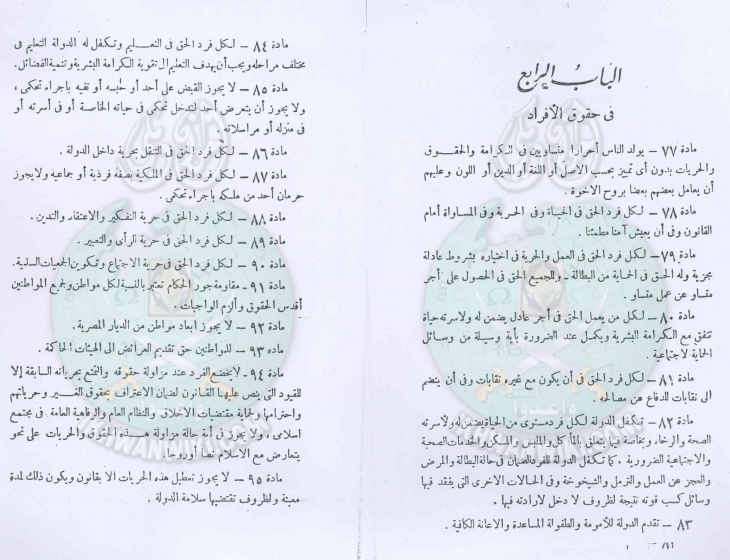 الباب الرابع
فى حقوق الأفراد
مادة ٧٧ – يولد الناس أحرارا متساويين فى الكرامة والحقوق
والحريات بدون أى تمييز بحسب الاصل أو اللغة أو الدين أو اللون وعليهم
أن يعامل بعضهم بعضا بروح الاخوة .
مادة ٧٨ – لكل فرد الحق فى الحياة وفى الحرية وفى المساواة أمام
القانون وفى أن يعيش آمنا مطمئنا .
مادة ٧٩ – لكل فرد الحق فى العمل والحرية فى اختياره بشروط عادلة
مجزية وله الحق فى الحماية من البطالة – وللجميع الحق فى الحصول على أجر
متساو عن عمل متساو .
مادة ٨٠ – لكل من يعمل الحق فى أجر عادل يضمن له ولاسرته حياة
تتفق مع الكرامة البشرية ويكمل عند الضرورة بأية وسيلة من وسائل
الحماية لاجتماعية .
مادة ٨١ – لكل فرد الحق فى أن يكون مع غيره نقابات وفى أن ينضم
الى نقابات للدفاع عن مصالحه
مادة ٨٢ – تكفل الدولة لكل فرد مستوى من الحياة يضمن له ولاسرته
الصحة والرخاء وبخاصة فيما يتعلق بالمأكل والملبس والمسكن والخدمات الصحية
والاجتماعية الضرورية . كما تكفل الدولة للفرد الضمان فى حالة البطالة والمرض
والعجز عن العمل والترمل والشيخوخة وفى الحالات الاخرى التى يفقد فيها
وسائل كسب قوته نتيجة لظروف لا دخل لارادته فيها .
٨٣ – تقدم الدولة للأمومة والطفولة المساعدة والاعانة الكافية .
مادة ٨٤ – لكل فرد الحق فى التعليم وتكفل له الدولة التعليم فى
مختلف مراحله ويجب أن يهدف التعليم الى تقوية الكرامة البشرية وتنمية الفضائل.
مادة ٨٥ – لا يجوز القبض على أحد أو حبسه أو نفيه باجراء تحكمى ،
ولا يجوز أن يتعرض أحد لتدخل تحكمى فى حياته الخاصة أو فى أسرته أو
فى منزله أو مراسلاته .
مادة ٨٦ – لكل فرد الحق فى التنقل بحرية داخل الدولة .
مادة ٨٧ – لكل فرد الحق فى الملكية بصفة فردية أو جماعية ولا يجوز
حرمان أحد من ملكه باجراء تحكمى .
مادة ٨٨ – لكل فرد الحق فى حرية التفكير والاعتقاد والتدين .
مادة ٨٩ – لكل فرد الحق فى حرية الرأى والتعبير .
مادة ٩٠ – لكل فرد الحق فى حرية الاجتماع وتكوين الجمعيات السلمية.
مادة ٩١ – مقاومة جور الحكام تعتبر بالنسبة لكل مواطن ولجميع المواطنين
أقدس الحقوق وألزم الواجبات .
مادة ٩٢ – لا يجوز ابعاد مواطن من الديار المصرية .
ماده ٩٣ – للمواطنين حق تقديم العرائض الى الهيئات الحاكمة .
مادة ٩٤ – لا يخضع الفرد عند مزاولة حقوقه والتمتع بحرياته السابقة إلا
للقيود التى ينص عليها القانون لضمان الاعتراف بحقوق الغير وحرياتهم
واحترامها ولحماية مقتضيات الاخلاق والنظام العام والرفاهية العامة فى مجتمع
اسلامى ، ولا يجوز فى أية حالة مزاولة هذه الحقوق والحريات على نحو
يتعارض مع الاسلام نصا أو روحا
مادة ٩٥ – لا يجوز تعطيل هذه الحريات الا بقانون ويكون ذلك لمدة
معينة ولظروف تقتضيها سلامة الدولة .